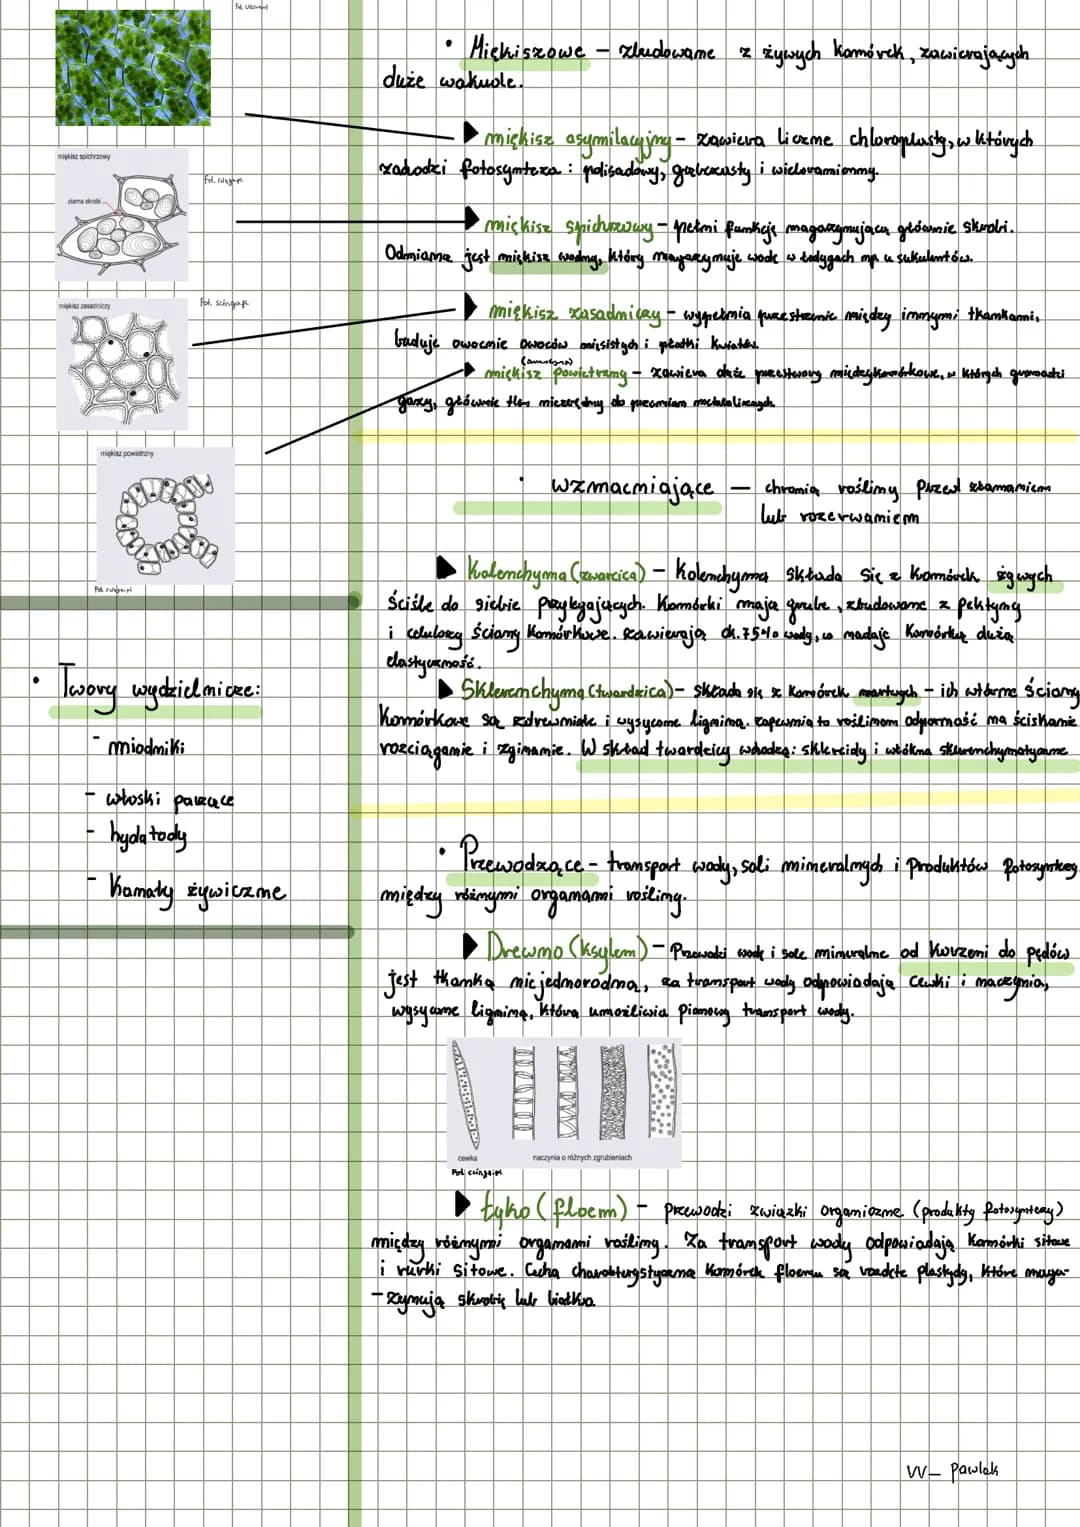 Fot. Ucze.pl
• Miękiszowe – zbudowane z żywych komórek, zawierających
duże wakuole.
miękisz asymilacyjny – zawiera liczne chloroplasty, w których
zachodzi fotosynteza: palisadowy, gąbczasty i wieloramienny.
miękisz spichrzowy
ziarna skrobi
miękisz spichrzowy – pełni funkcję magazynującą głównie skrobi.
Odmianą jest miękisz wodny, który magazynuje wodę w łodygach np u sukulentów.
miękisz zasadniczy
miękisz zasadniczy – wypełnia przestrzenie między innymi tkankami,
buduje owocnie owoców mięsistych i płatki kwiatów.
miękisz powietrzny – zawiera duże przestwory międzykomórkowe, w których gromadzi
gazy, głównie tlen niezbędny do przemian metabolicznych.
miękisz powietrzny
• wzmacniające – chronią rośliny przed złamaniem
lub rozerwaniem
Kolenchyma (zwarcica) – Kolenchyma składa się z komórek żywych
ściśle do siebie przylegających. Komórki mają grube, zbudowane z pektyny
i celulozy ściany komórkowe. Zawierają ok. 75% wody, co nadaje komórką dużą
elastyczność.
Sklerenchyma (twardzica) – składa się z komórek martwych – ich wtórne ściany
komórkowe są zdrewniałe i wysycone ligniną. Zapewnia to roślinom odporność na ściskanie
rozciąganie i zginanie. W skład twardzicy wchodzą: sklereidy i włókna sklerenchymatyczne
• Twory wydzielnicze:
- miodniki
- włoski parzące
- hydatody
- kanały żywiczne
• Przewodzące – transport wody, soli mineralnych i produktów fotosyntezy
między różnymi organami rośliny.
Drewno (ksylem) – Przewodzi wodę i sole mineralne od korzeni do pędów
jest tkanką niejednorodną, za transport wody odpowiadają cewki i naczynia,
wysycone ligniną, która umożliwia pionowy transport wody.
cewka
naczynia o różnych zgrubieniach
Łyko (floem) – przewodzi związki organiczne (produkty fotosyntezy)
między różnymi organami rośliny. Za transport wody odpowiadają komórki sitowe
i rurki sitowe. Cechą charakterystyczną komórek floemu są plastydy, które maga-
-zynują skrobię lub białka.
W_ Pawlak